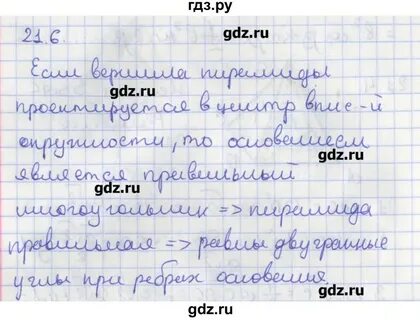 гдз.ру
21.6.
Если вершина пирамиды
проектируется в центр впис-й
окружности, то основанием
является правильный
многоугольник => пирамида
правильная => равны двугранные
углы при ребрах основания
гдз.ру
гдз.ру
гдз.ру
гдз.ру
гдз.ру
гдз.ру